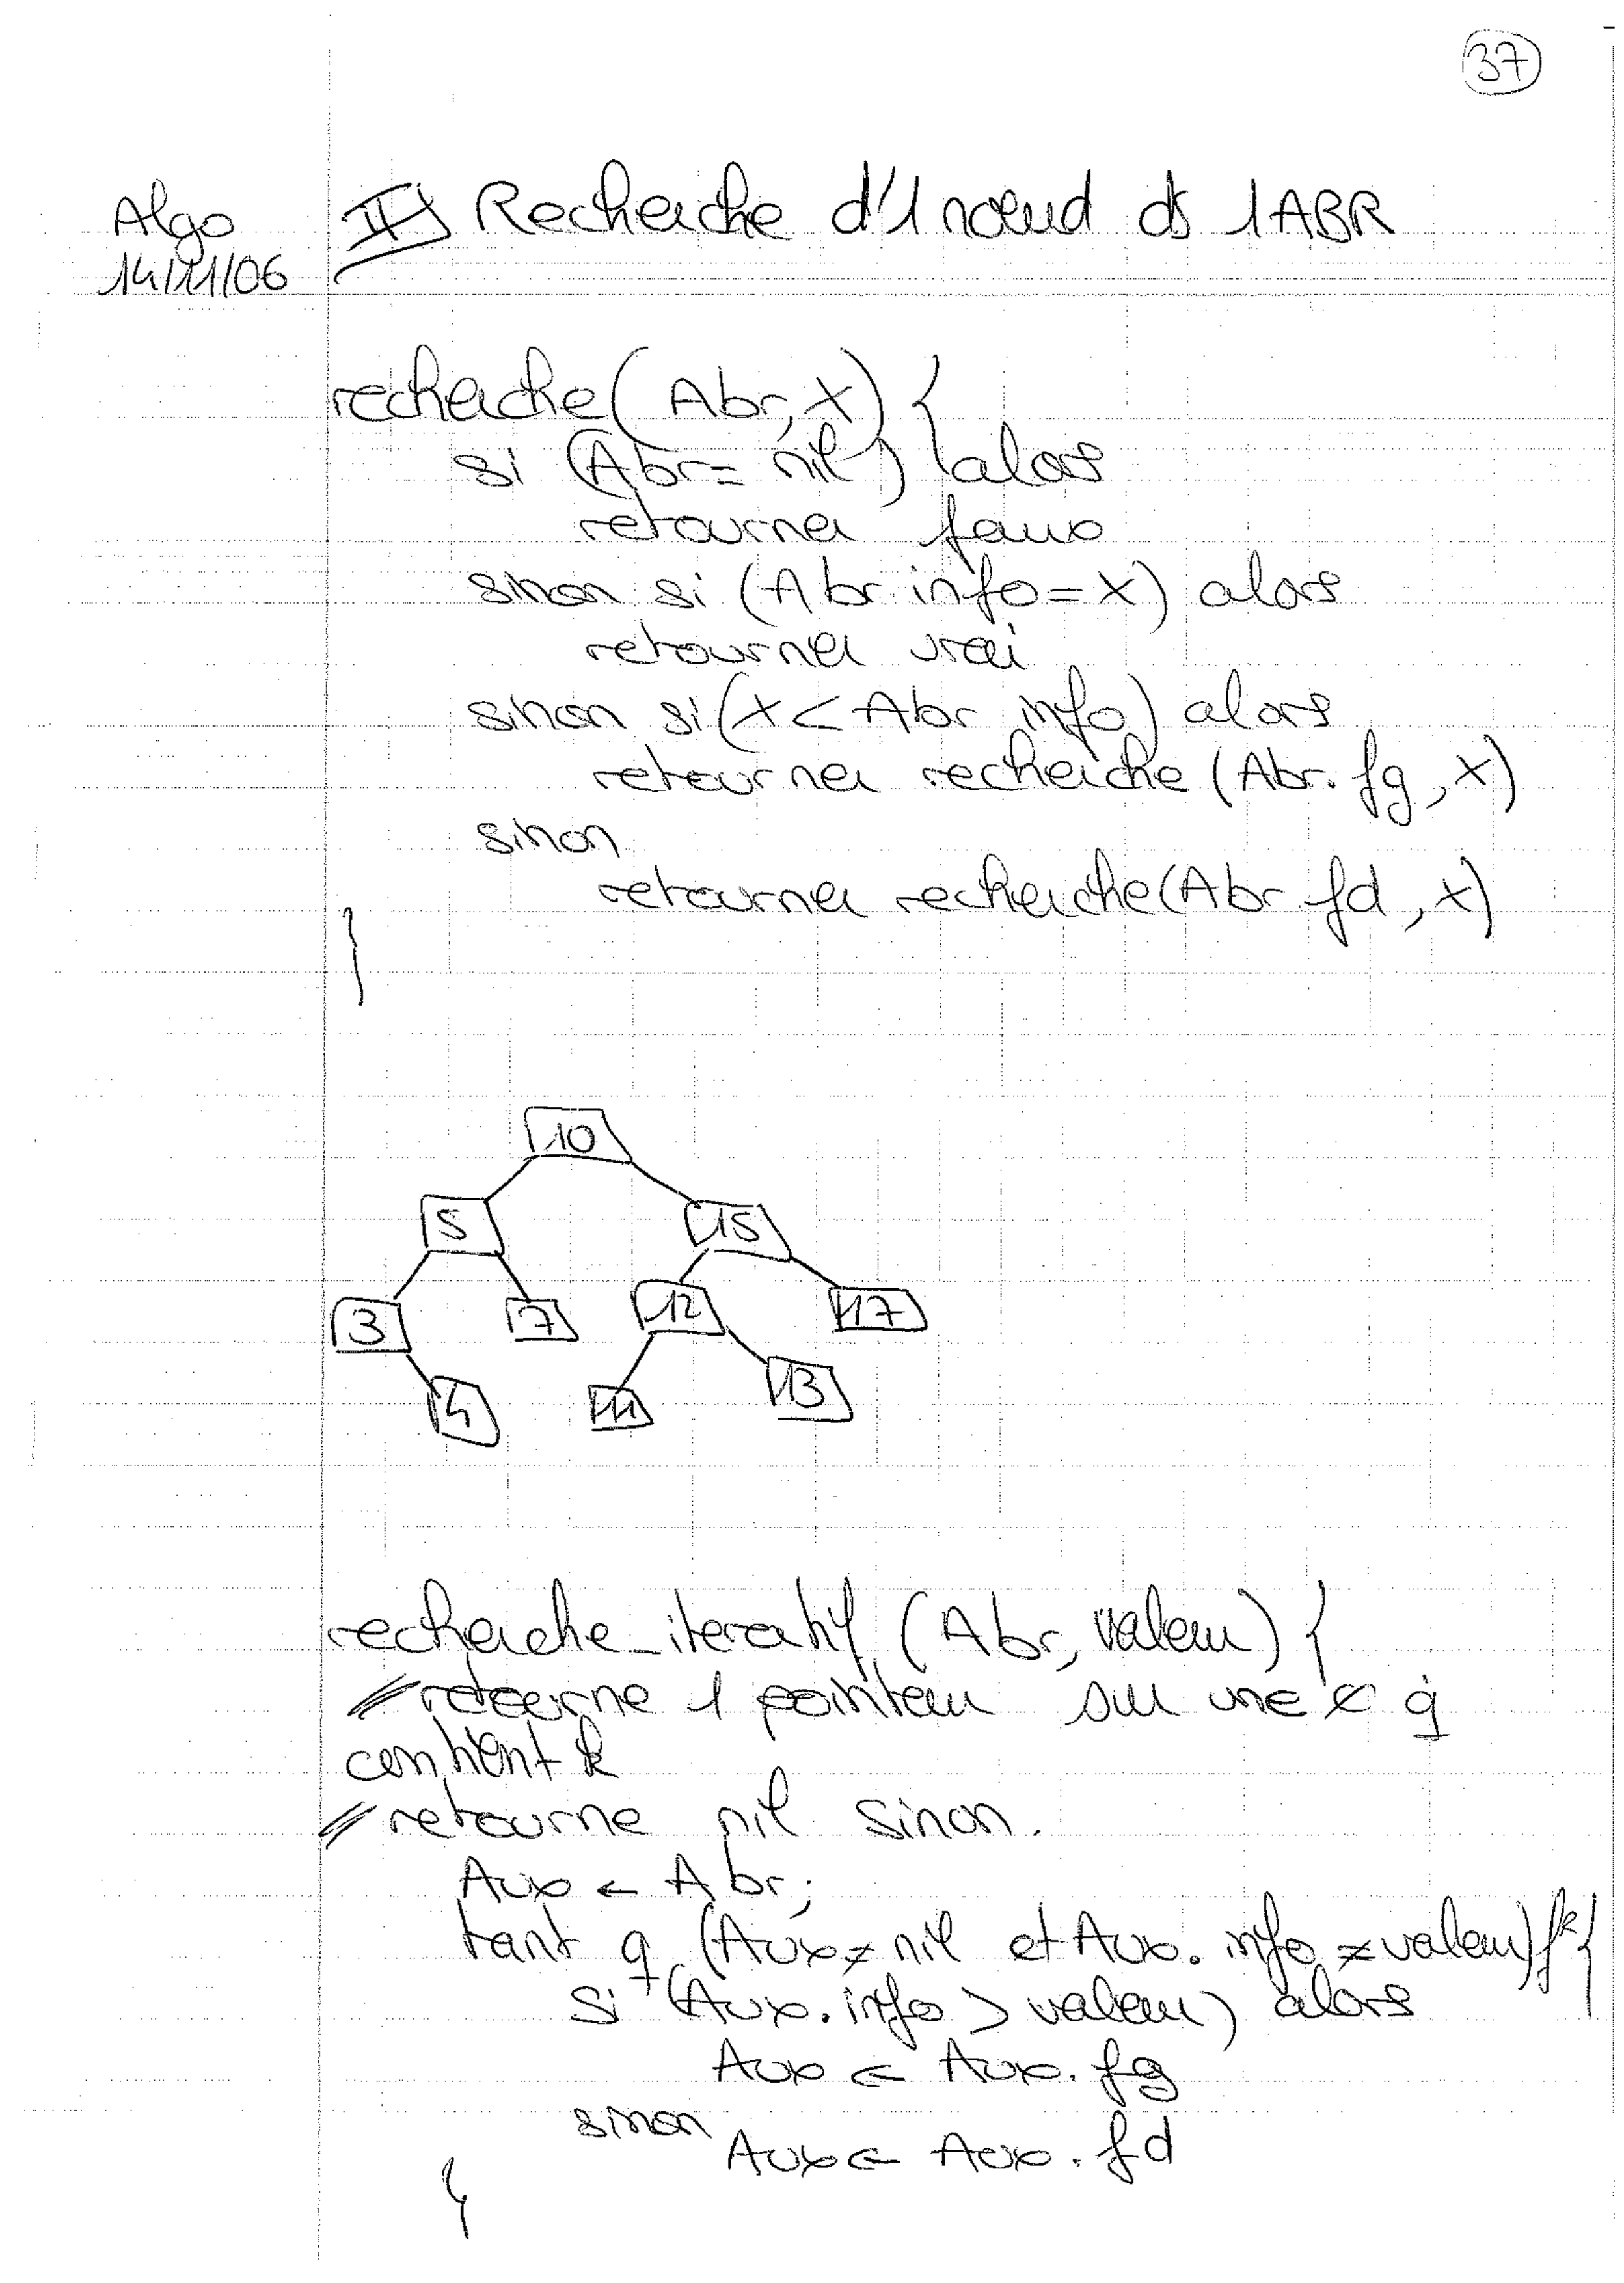 37
Algo
14/11/06
II) Recherche d'1 nœud ds 1 ABR
recherche(Abr, x) {
si (Abr = nil) alors
retourner faux
sinon si (Abr.info = x) alors
retourner vrai
sinon si (x < Abr.info) alors
retourner recherche (Abr.fg, x)
sinon
retourner recherche(Abr.fd, x)
}
10
5 15
3 7 12 17
4 11 13
recherche_iteratif (Abr, valeur) {
// retourne 1 pointeur sur une q
contient
// retourne nil sinon.
Aux ← Abr;
tant q (Aux ≠ nil et Aux.info ≠ valeur) {
si (Aux.info > valeur) alors
Aux ← Aux.fg
sinon
Aux ← Aux.fd
}